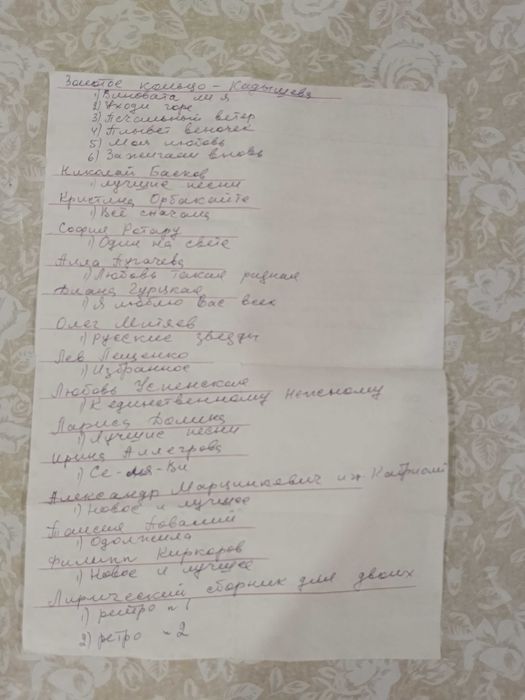 Золотое кольцо - Кадышева
1) Виновата ли я
2) Уходи горе
3) Печальный ветер
4) Плывёт веночек
5) Моя любовь
6) Зажигаем вновь
Николай Басков
1) Лучшие песни
Кристина Орбакайте
1) Всё сначала
София Ротару
1) Одна на свете
Алла Пугачева
1) Любовь такая
Диана Гурцкая
1) Я люблю Вас всех
Олег Митяев
1) Русские звезды
Лев Лещенко
1) Избранное
Любовь Успенская
1) К единственному нежному
Лариса Долина
1) Лучшие песни
Ирина Аллегрова
1) Се-ля-Ви
Александр Марцинкевич и
1) Новое и лучшее
Таисия Повалий
1) Одолжила
Филипп Киркоров
1) Новое и лучшее
Лирический сборник для двоих
1) ретро
2) ретро - 2